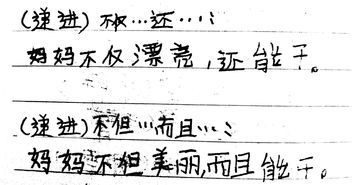 (递进)不仅…还…:
妈妈不仅漂亮,还能干。
(递进)不但…而且…:
妈妈不但美丽,而且能干。